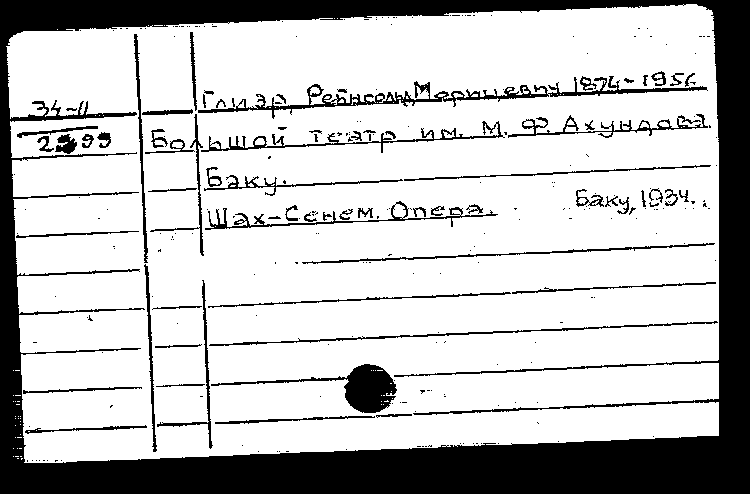 34-11 Глиэр, Рейнгольд Морицевич 1874-1956
Большой театр им. М. Ф. Ахундова
Баку.
Шах-Сенем. Опера. Баку, 1934.